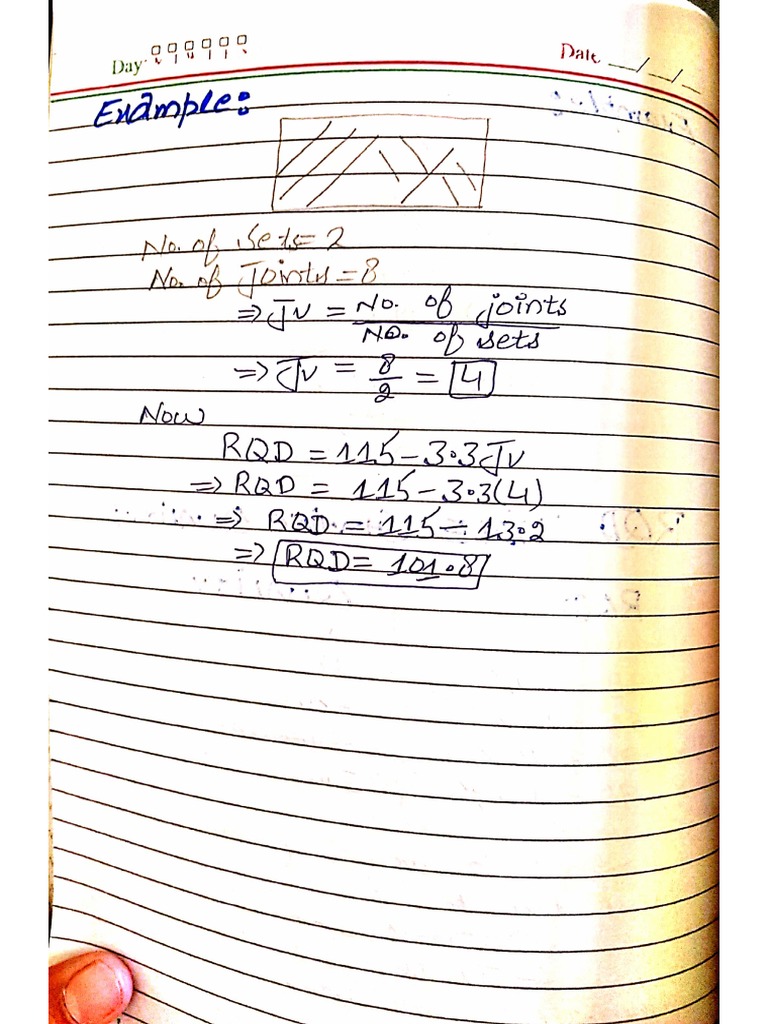 Day
Date __/__/__
Example:
No. of Sets = 2
No. of Joints = 8
⇒ Jv = No. of joints
No. of sets
⇒ Jv = 8/2 = 4
Now
RQD = 115 - 3.3Jv
⇒ RQD = 115 - 3.3(4)
⇒ RQD = 115 - 13.2
⇒ RQD = 101.8